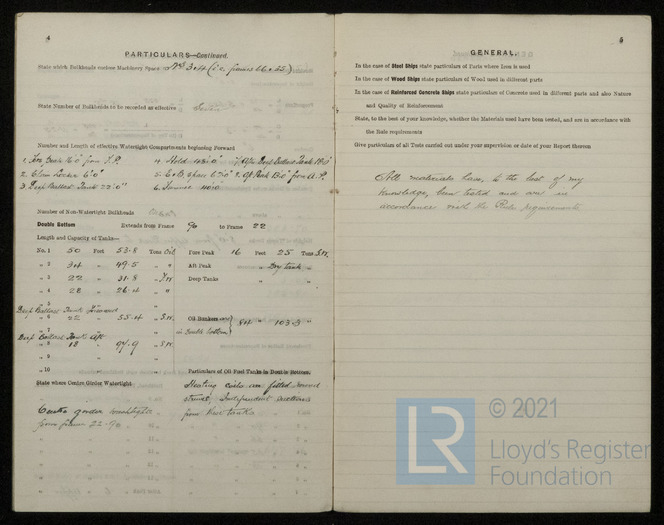 4
PARTICULARS—Continued.
State which Bulkheads enclose Machinery Space: Nos 3 & 4 (i.e. frames 66 & 22)
State Number of Bulkheads to be recorded as effective Seven
Number and Length of effective Watertight Compartments beginning Forward
1. Fore Peak 16'0" from F.P. 4. Hold 148'0" 7. Aft Deep Ballast Tank 18'0"
2. Chain Locker 6'0" 5. E & B. Space 67'0" 8. Aft Peak 13'0" from A.P.
3. Deep Ballast Tank 22'0" 6. Tunnel
Number of Non-Watertight Bulkheads
Double Bottom Extends from Frame 90 to Frame 22
Length and Capacity of Tank—
No. 1 50 Feet 53.8 Tons Oil
" 2 34 " 49.5 " "
" 3 22 " 31.8 " F.W
" 4 28 " 26.4 " "
" 5
Deep Ballast Tank Forward
" 6 22 " 55.4 " S.W.
" 7
Deep Ballast Tank Aft
" 8 18 " 97.9 " S.W
" 9
" 10
State where Centre Girder Watertight
Centre girder watertight
from frame 22-90
Fore Peak 16 Feet 25 Tons S.W.
Aft Peak " Dry tank "
Deep Tanks " "
Oil Bunkers and in double bottom 84 " 103.3 "
Particulars of Oil Fuel Tanks in Double Bottom.
Heating coils are fitted round
strums, Independent suctions
from these tanks
5
GENERAL.
In the case of Steel Ships state particulars of Parts where Iron is used
In the case of Wood Ships state particulars of Wood used in different parts
In the case of Reinforced Concrete Ships state particulars of Concrete used in different parts and also Nature
and Quality of Reinforcement
State, to the best of your knowledge, whether the Materials used have been tested, and are in accordance with
the Rule requirements
Give particulars of all Tests carried out under your supervision or date of your Report thereon
All materials have, to the best of my
knowledge, been tested and are in
accordance with the Rule requirements
LR
© 2021
Lloyd's Register
Foundation